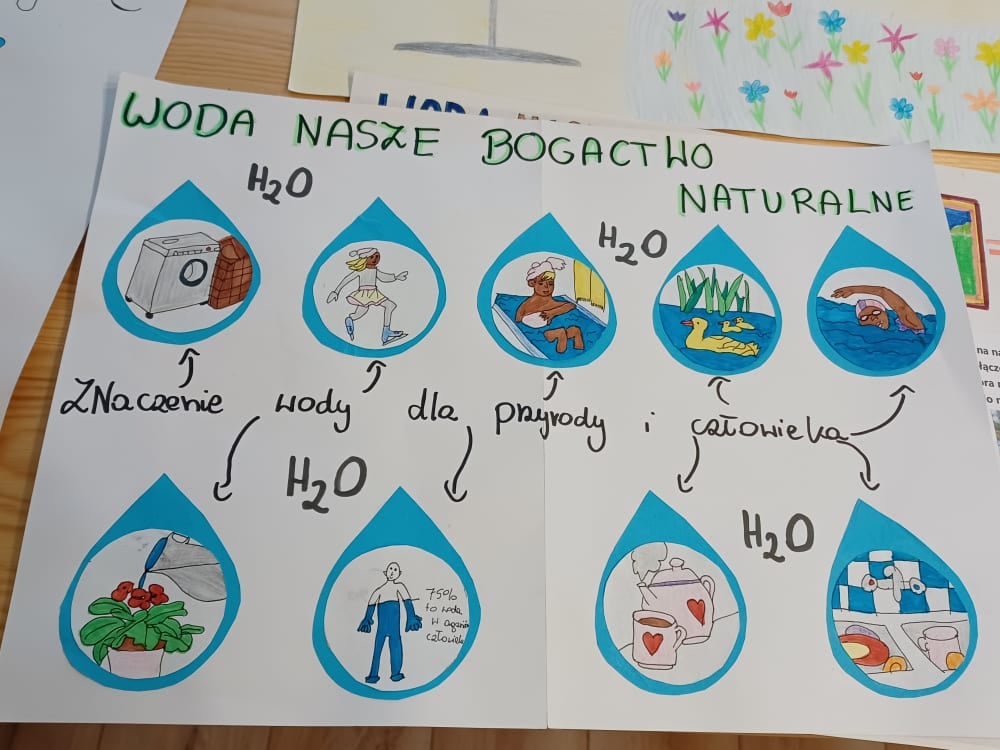 WODA NASZE BOGACTWO
NATURALNE
H₂O
H₂O
Znaczenie wody dla przyrody i człowieka
H₂O
H₂O
75%
to woda
w
człowieka
WODA